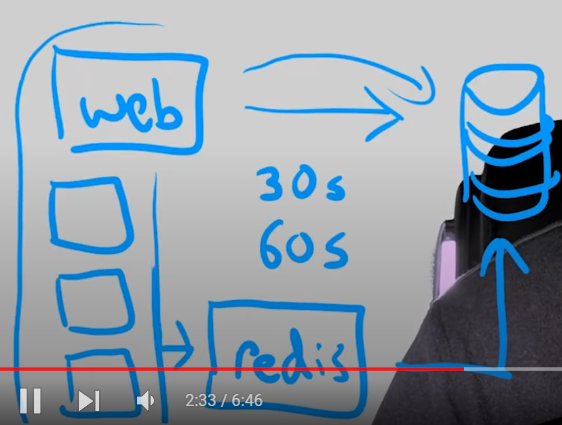 web
30s
60s
redis
2:33 / 6:46